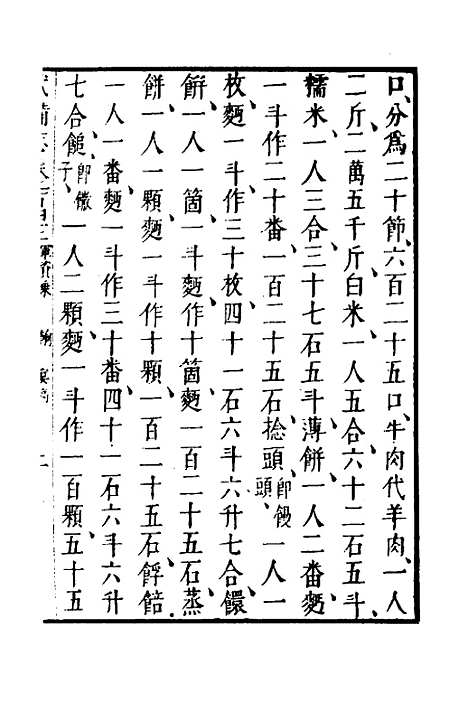 口、分爲二十節、六百二十五口、牛肉代羊肉、一人
二斤、二萬五千斤白米一人五合、六十二石五斗、
糯米一人三合、三十七石五斗、薄餅一人二番、麪
一斗作二十番、一百二十五石、捻頭、即饅頭、一人一
枚、麪一斗作三十枚、四十一石六斗六升七合、䭔
餅、一人一箇、一斗麪作十箇、麪一百二十五石、蒸
餅、一人一顆、麪一斗作十顆、一百二十五石、餢餢
一人一番、麪一斗作三十番、四十一石六斗六升
七合、䭔、即饊子、一人二顆、麪一斗作一百顆、五十五
武備志